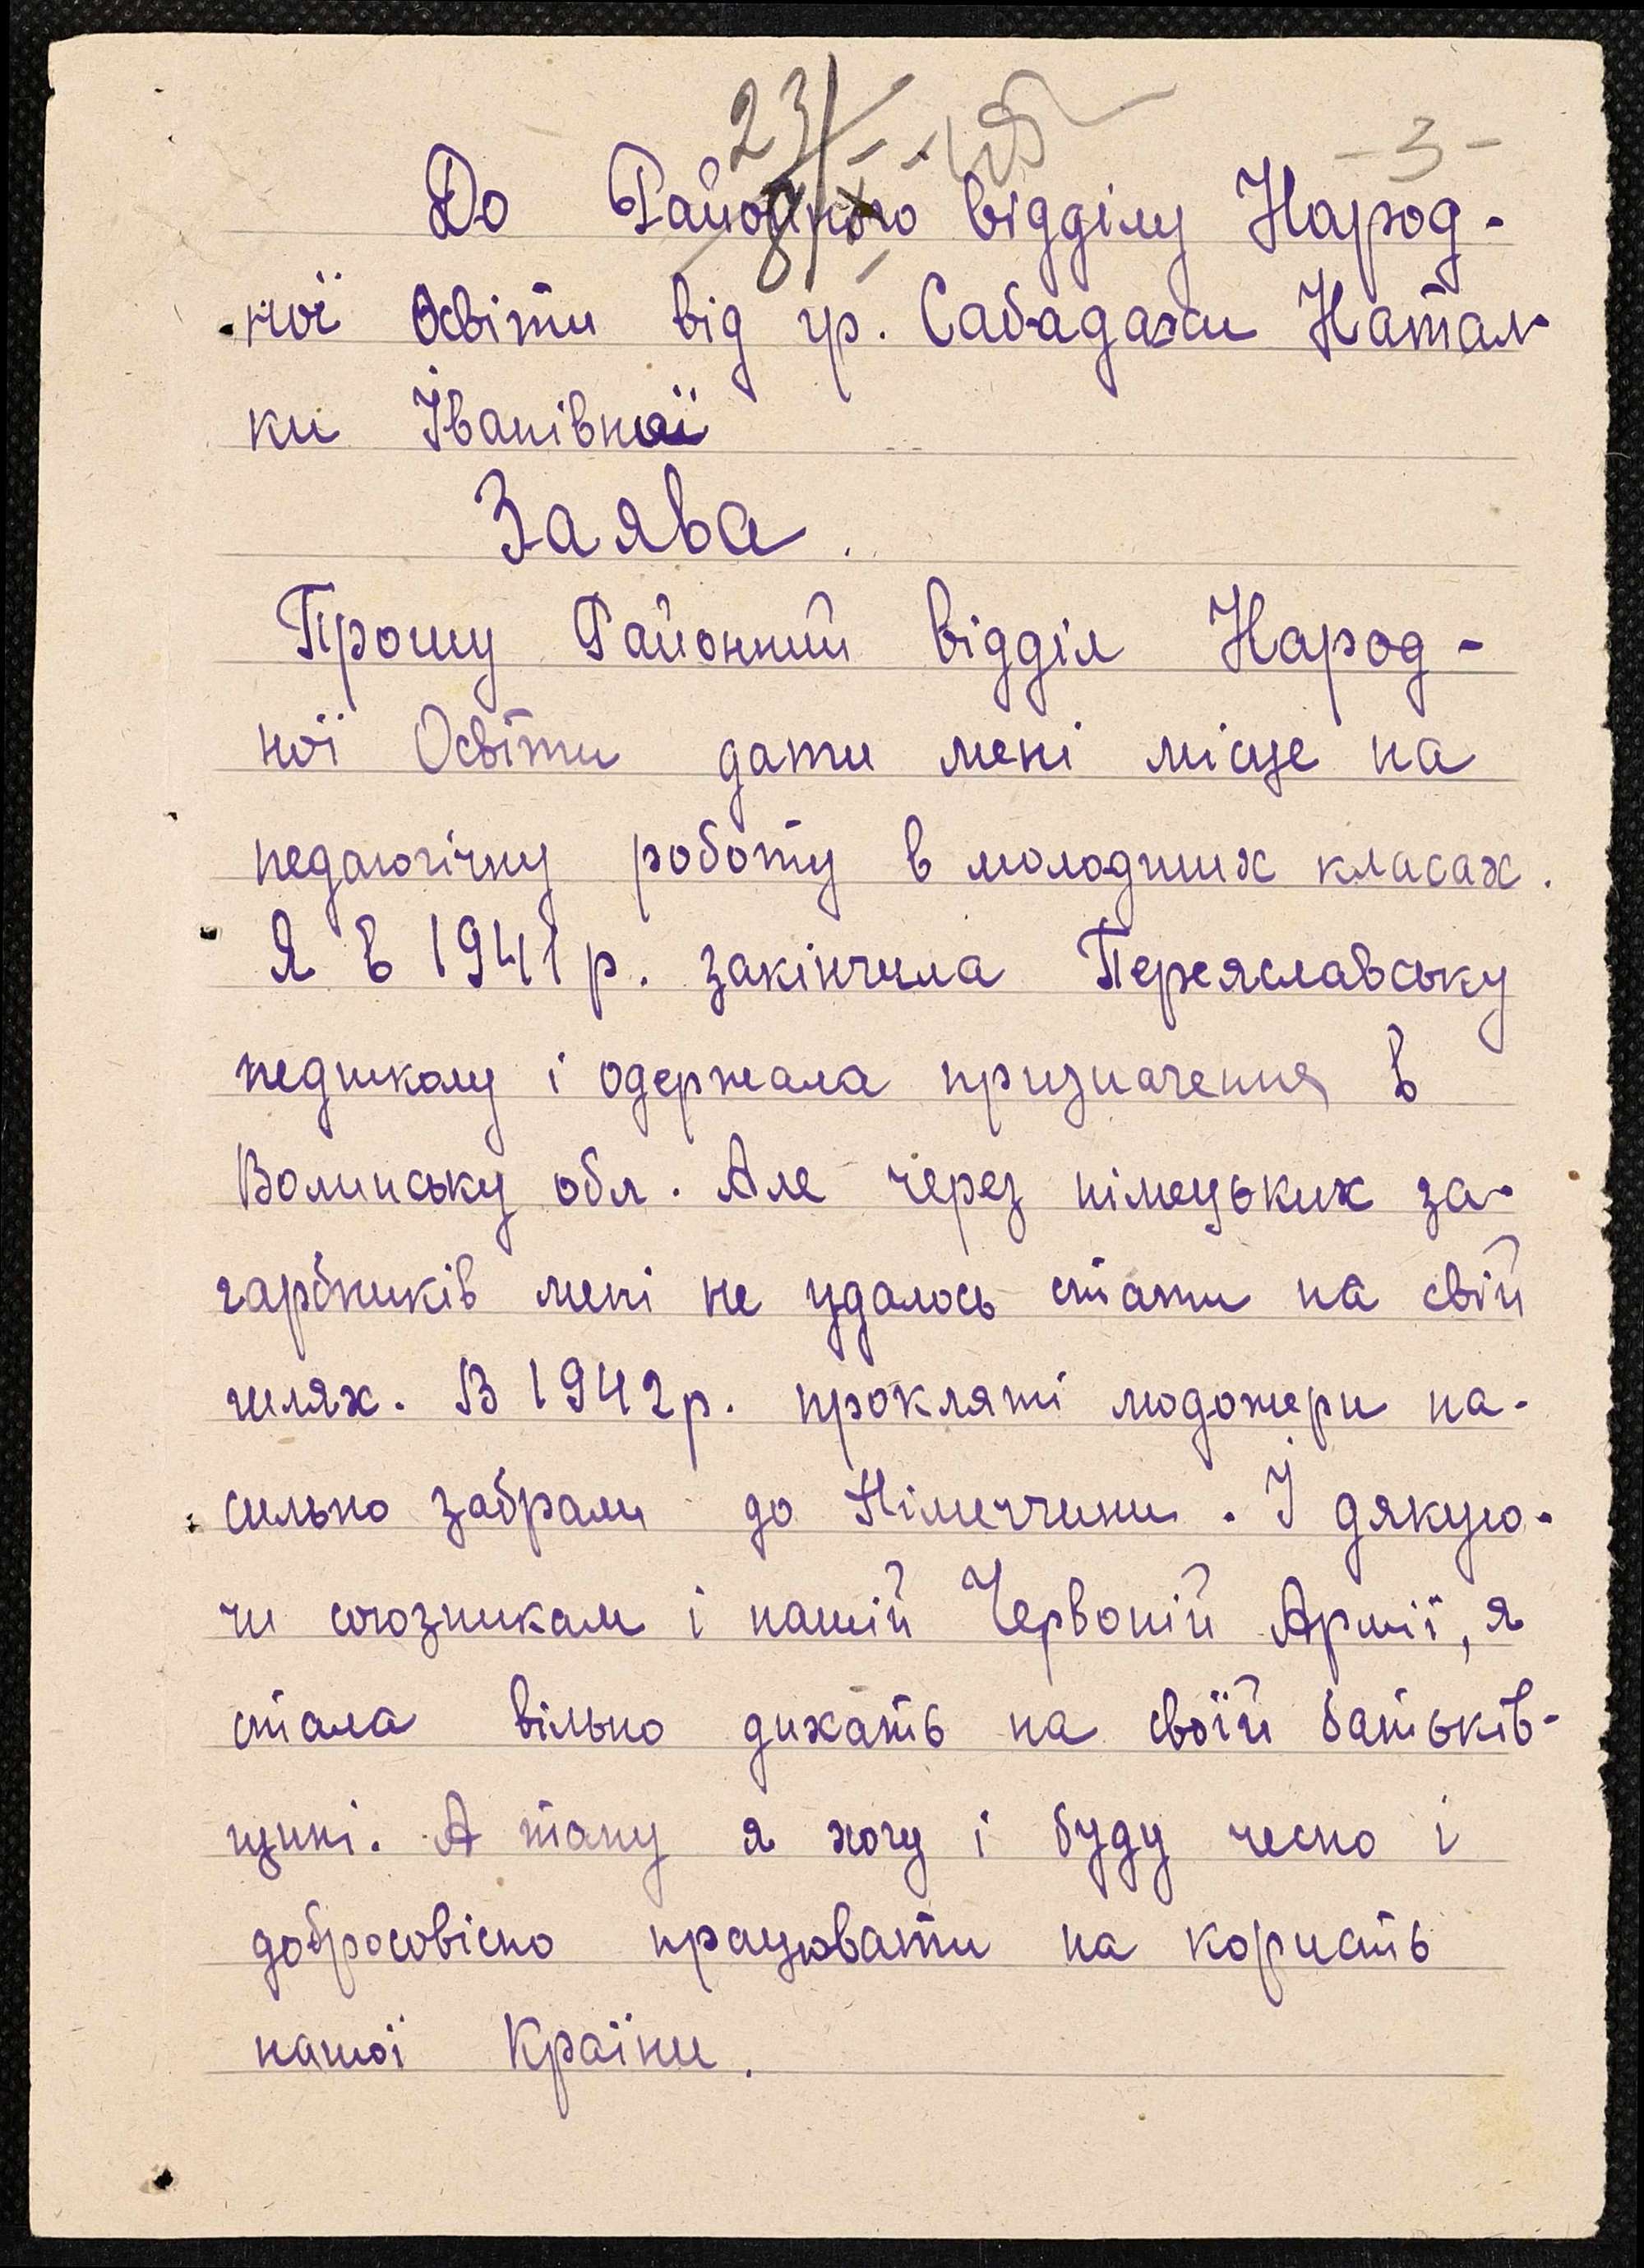 23/
-3-
До Районного відділу Народ-
ної Освіти від гр. Сабадахи Натал-
ки Іванівної
Заява.
Прошу Районний відділ Народ-
ної Освіти дати мені місце на
педагогічну роботу в молодших класах.
Я в 1941 р. закінчила Переяславську
педшколу і одержала призначення в
Волинську обл. Але через німецьких за-
гарбників мені не удалось стати на свій
шлях. В 1942 р. прокляті людожери на-
сильно забрали до Німеччини. І дякую-
чи союзникам і нашій Червоній Армії, я
стала вільно дихать на своїй батьків-
щині. А тому я хочу і буду чесно і
добросовісно працювати на користь
нашої Країни.